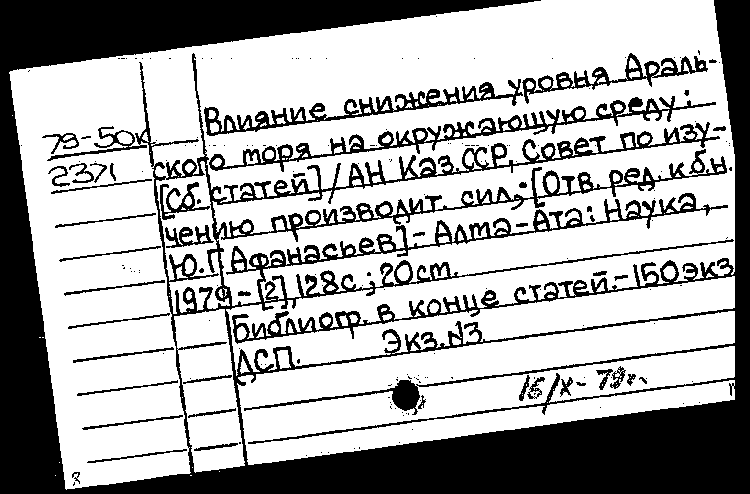 Влияние снижения уровня Араль-
79-50к ского моря на окружающую среду:
2371 [Сб. статей] / АН Каз.ССР, Совет по изу-
чению производит. сил,; [Отв. ред. к.б.н.
Ю.Г. Афанасьев].- Алма-Ата: Наука,
1979.- [2], 128с.; 20см.
Библиогр. в конце статей.- 150экз
ДСП. Экз.№3
16/X- 79г.